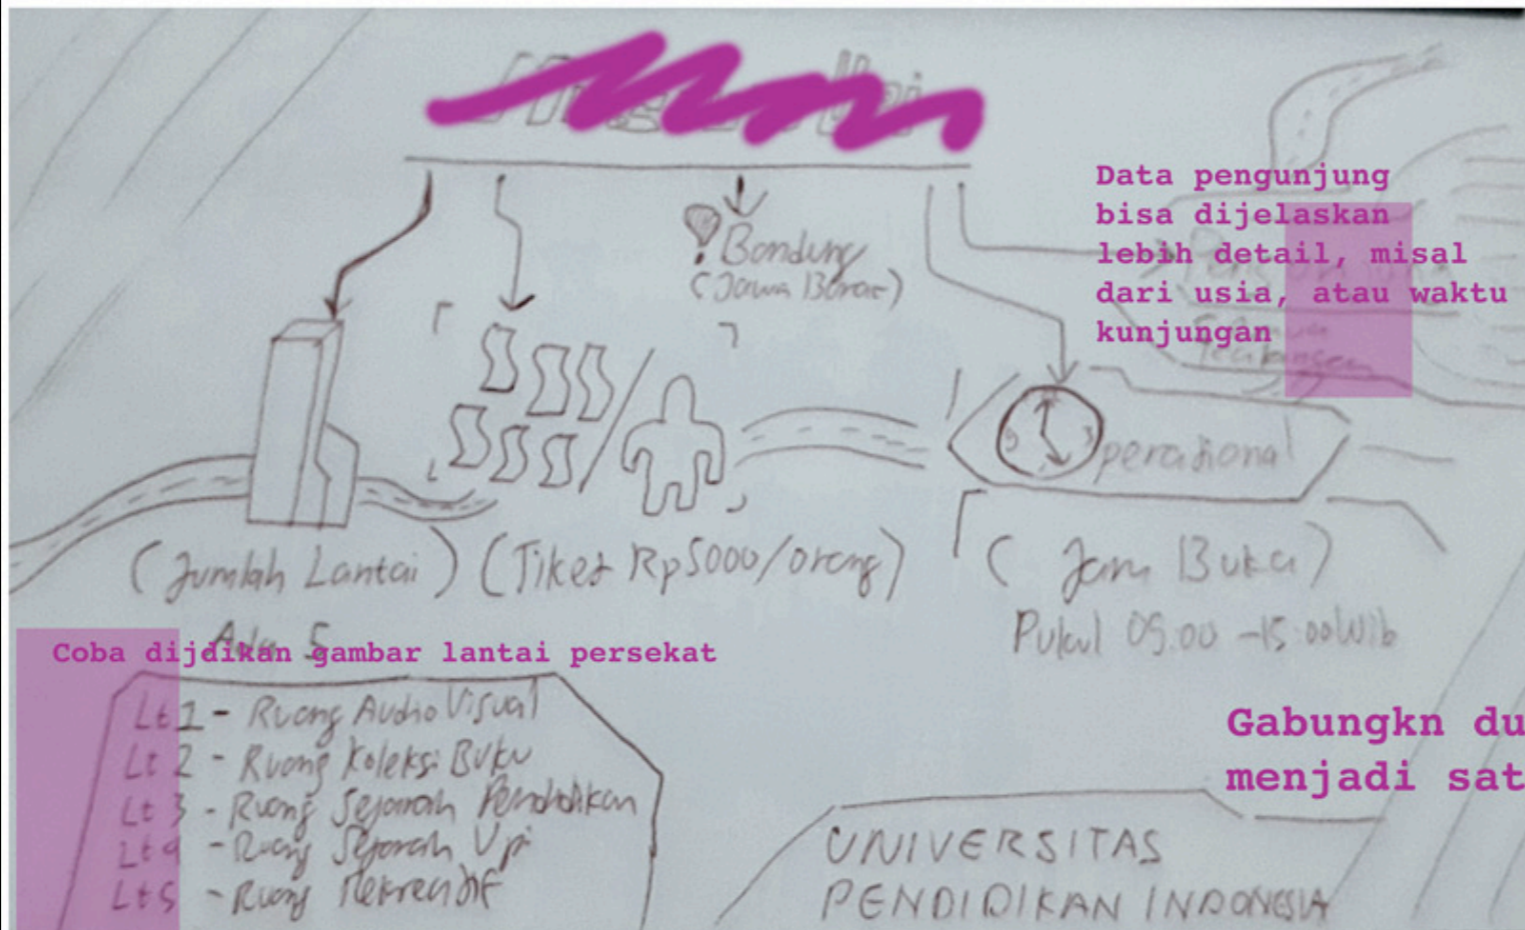 Data pengunjung
bisa dijelaskan
lebih detail, misal
dari usia, atau waktu
kunjungan
Bandung
(Jawa Barat)
9 3 perasional
(Jumlah Lantai) (Tiket Rp5000/orang) (Jam Buka)
Pukul 09.00 - 15.00 Wib
Ada 5
Coba dijdikan gambar lantai persekat
Lt 1 - Ruang Audio Visual
Lt 2 - Ruang Koleksi Buku
Lt 3 - Ruang Sejarah Pendidikan
Lt 4 - Ruang Sejarah Upi
Lt 5 - Ruang Rekreatif
Gabungkn du
menjadi sat
UNIVERSITAS
PENDIDIKAN INDONESIA